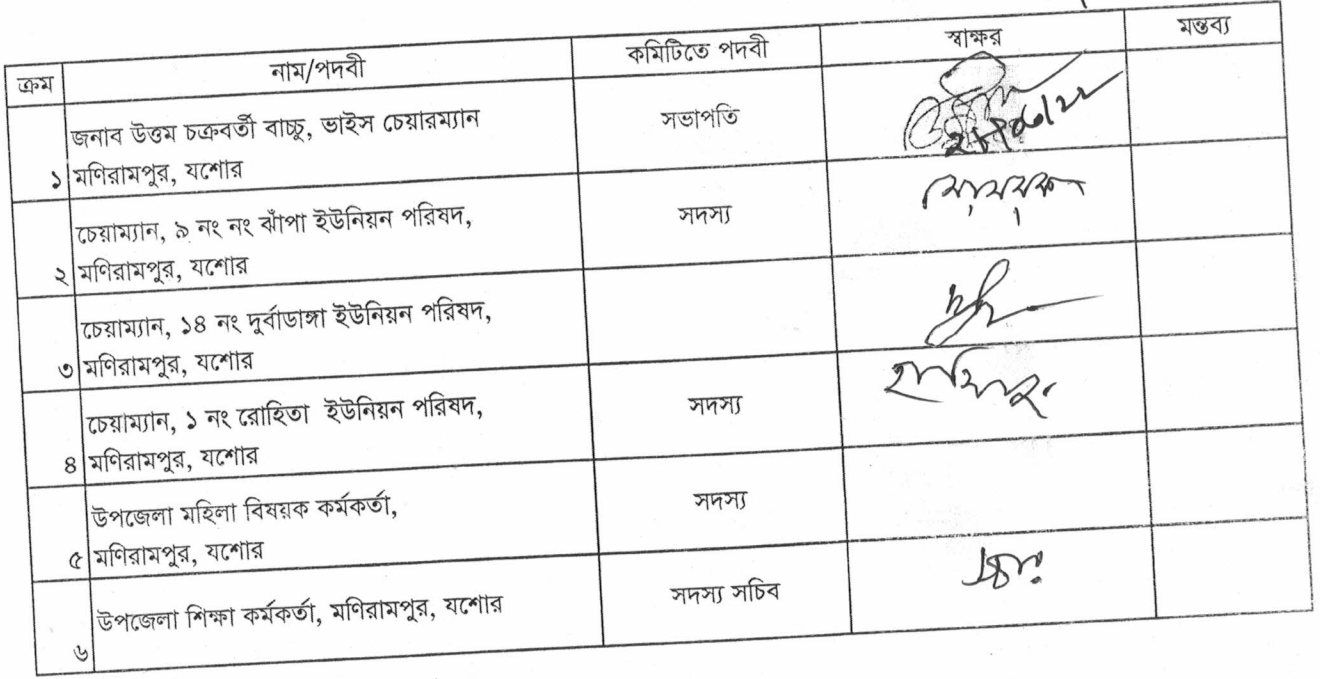 ক্রম নাম/পদবী কমিটিতে পদবী স্বাক্ষর মন্তব্য
জনাব উত্তম চক্রবর্তী বাচ্চু, ভাইস চেয়ারম্যান সভাপতি
১ মণিরামপুর, যশোর
চেয়াম্যান, ৯ নং নং ঝাঁপা ইউনিয়ন পরিষদ, সদস্য
২ মণিরামপুর, যশোর
চেয়াম্যান, ১৪ নং দুর্বাডাঙ্গা ইউনিয়ন পরিষদ,
৩ মণিরামপুর, যশোর
চেয়াম্যান, ১ নং রোহিতা ইউনিয়ন পরিষদ, সদস্য
৪ মণিরামপুর, যশোর
উপজেলা মহিলা বিষয়ক কর্মকর্তা, সদস্য
৫ মণিরামপুর, যশোর
উপজেলা শিক্ষা কর্মকর্তা, মণিরামপুর, যশোর সদস্য সচিব
৬